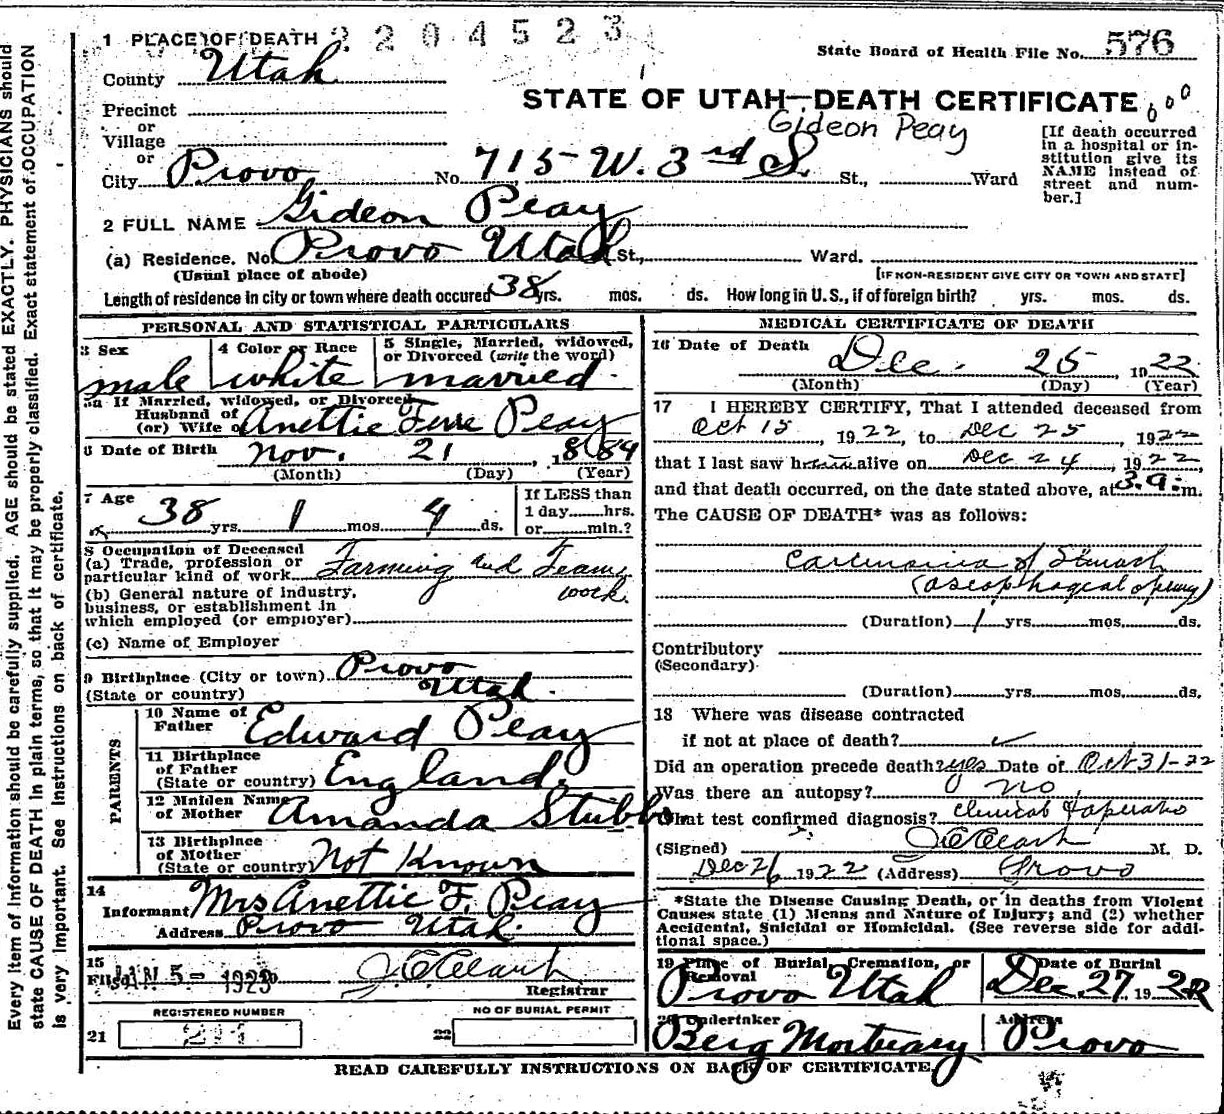 1 PLACE OF DEATH 2204523
State Board of Health File No. 576
County Utah
Precinct
or
Village
or
City Provo No. 715 W. 3rd S. St., Ward
STATE OF UTAH—DEATH CERTIFICATE
Gideon Peay
[If death occurred
in a hospital or in-
stitution give its
NAME instead of
street and num-
ber.]
2 FULL NAME Gideon Peay
(a) Residence. No. Provo Utah St., Ward.
(Usual place of abode) [IF NON-RESIDENT GIVE CITY OR TOWN AND STATE]
Length of residence in city or town where death occured 38 yrs. mos. ds. How long in U. S., if of foreign birth? yrs. mos. ds.
PERSONAL AND STATISTICAL PARTICULARS
3 Sex male
4 Color or Race white
5 Single, Married, widowed,
or Divorced (write the word)
married.
5a If Married, widowed, or Divorced
Husband of
(or) Wife of Anettie Ferre Peay
6 Date of Birth Nov. 21 1884
(Month) (Day) (Year)
7 Age 38 yrs. 1 mos. 4 ds.
If LESS than
1 day hrs.
or min.?
8 Occupation of Deceased
(a) Trade, profession or
particular kind of work Farming and Team
work.
(b) General nature of industry,
business, or establishment in
which employed (or employer)
(c) Name of Employer
9 Birthplace (City or town) Provo
(State or country) Utah.
PARENTS
10 Name of
Father Edward Peay
11 Birthplace
of Father
(State or country) England.
12 Maiden Name
of Mother Amanda Stubbs.
13 Birthplace
of Mother
(State or country) Not Known
14
Informant Mrs Anettie F. Peay
Address Provo Utah.
15
Filed JAN 5 - 1923 J. C. Clark
Registrar
REGISTERED NUMBER
21
NO OF BURIAL PERMIT
22
MEDICAL CERTIFICATE OF DEATH
16 Date of Death Dec. 25 1922
(Month) (Day) (Year)
17 I HEREBY CERTIFY, That I attended deceased from
Oct 15, 1922, to Dec 25, 1922
that I last saw him alive on Dec 24, 1922,
and that death occurred, on the date stated above, at 3.9 m.
The CAUSE OF DEATH* was as follows:
Carcinoma of Stomach
(Duration) 1 yrs. mos. ds.
Contributory
(Secondary)
(Duration) yrs. mos. ds.
18 Where was disease contracted
if not at place of death?
Did an operation precede death? yes Date of Oct 31-22
Was there an autopsy? no
What test confirmed diagnosis? Clinical &
(Signed) J. C. Clark M. D.
Dec 26 1922 (Address) Provo
*State the Disease Causing Death, or in deaths from Violent
Causes state (1) Means and Nature of Injury; and (2) whether
Accidental, Suicidal or Homicidal. (See reverse side for addi-
tional space.)
19 Place of Burial, Cremation, or
Removal
Provo Utah
Date of Burial
Dec. 27, 1922
20 Undertaker
Berg Mortuary
Address
Provo
READ CAREFULLY INSTRUCTIONS ON BACK OF CERTIFICATE
Every item of information should be carefully supplied. AGE should be stated EXACTLY. PHYSICIANS should
state CAUSE OF DEATH in plain terms, so that it may be properly classified. Exact statement of OCCUPATION
is very important. See Instructions on back of certificate.